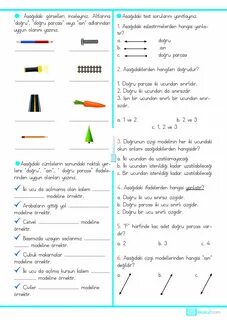 Aşağıdaki görselleri inceleyiniz. Altlarına
"doğru", "doğru parçası" veya "ışın" adlarından
uygun olanını yazınız.
Aşağıdaki cümlelerin sonundaki noktalı yer-
lere "doğru", "ışın", "doğru parçası" ifadele-
rinden uygun olanları yazınız.
İki ucu da açılmamış olan kalem
modeline örnektir.
Arabaların gittiği yol
modeline örnektir.
Cetvel modeline
örnektir.
Başımızda uzayan saçlarımız
modeline örnektir.
Çubuk makarnalar
modeline örnektir.
İki ucu da açılmış kurşun kalem
modeline örnektir.
Çiviler modeline
örnektir.
Aşağıdaki test sorularını yanıtlayınız.
1. Aşağıdaki eşleştirmelerden hangisi yanlış-
tır?
a. doğru
b. ışın
c. doğru parçası
2. Aşağıdakilerden hangileri doğrudur?
1. Doğru parçası iki ucundan sınırlıdır.
2. Doğru iki ucundan da sınırsızdır.
3. Işın bir ucundan sınırlı bir ucundan sınır-
sızdır.
a. 1 ve 2 b. 2 ve 3
c. 1, 2 ve 3
3. Doğrunun çizgi modelinin her iki ucundaki
okun anlamı aşağıdakilerden hangisidir?
a. İki ucundan da uzatılamayacağı
b. İki ucundan istenildiği kadar uzatılabileceği
c. Bir ucundan istenildiği kadar uzatılabileceği
4. Aşağıdaki ifadelerden hangisi yanlıştır?
a. Doğru iki ucu sınırsız çizgidir.
b. Doğru parçası iki ucu sınırlı çizgidir.
c. Doğru bir ucu sınırlı çizgidir.
5. "F" harfinde kaç adet doğru parçası var-
dır?
a. 1 b. 2 c. 3
6. Aşağıdaki çizgi modellerinden hangisi "ışın"
değildir?
a. b. c.